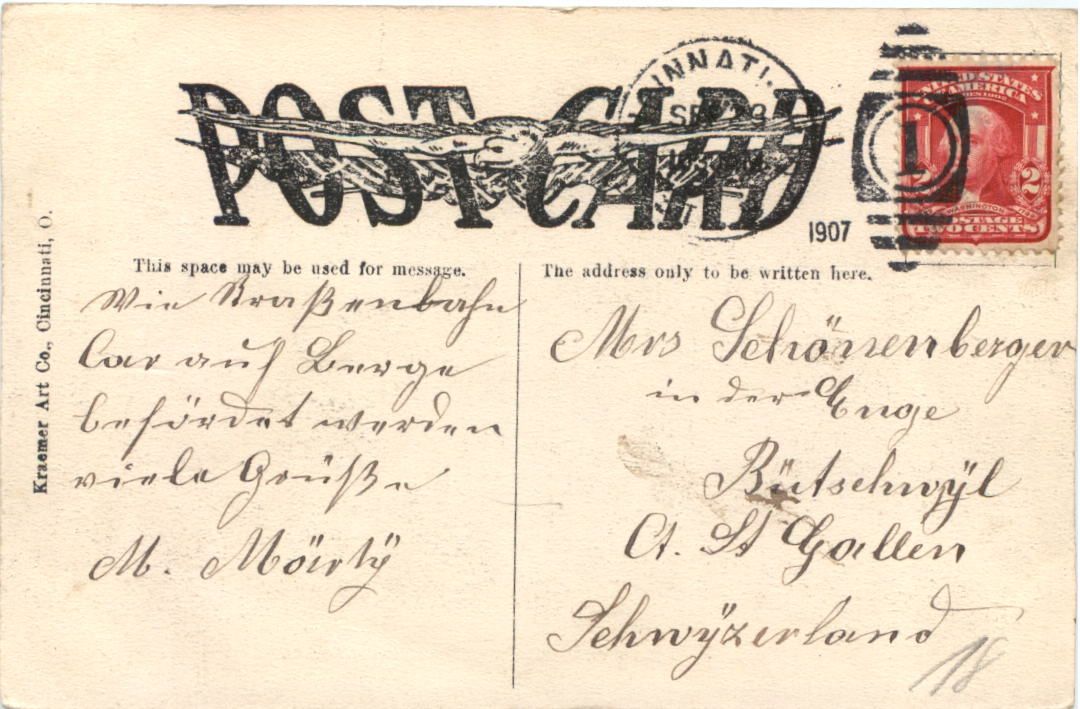 POST CARD
CINNATI.
SEP
1907
UNITED STATES
OF AMERICA
SERIES 1902
1
2
2
WASHINGTON
POSTAGE
TWO CENTS
This space may be used for message.
The address only to be written here.
Kraemer Art Co., Cincinnati, O.
Wie Straßenbahn
Car auf Berge
befördet werden
viele Grüße
M. Märtÿ
Mrs Schönenberger
in der Enge
Bütschwÿl
Ct. St Gallen
Schwÿzerland
18